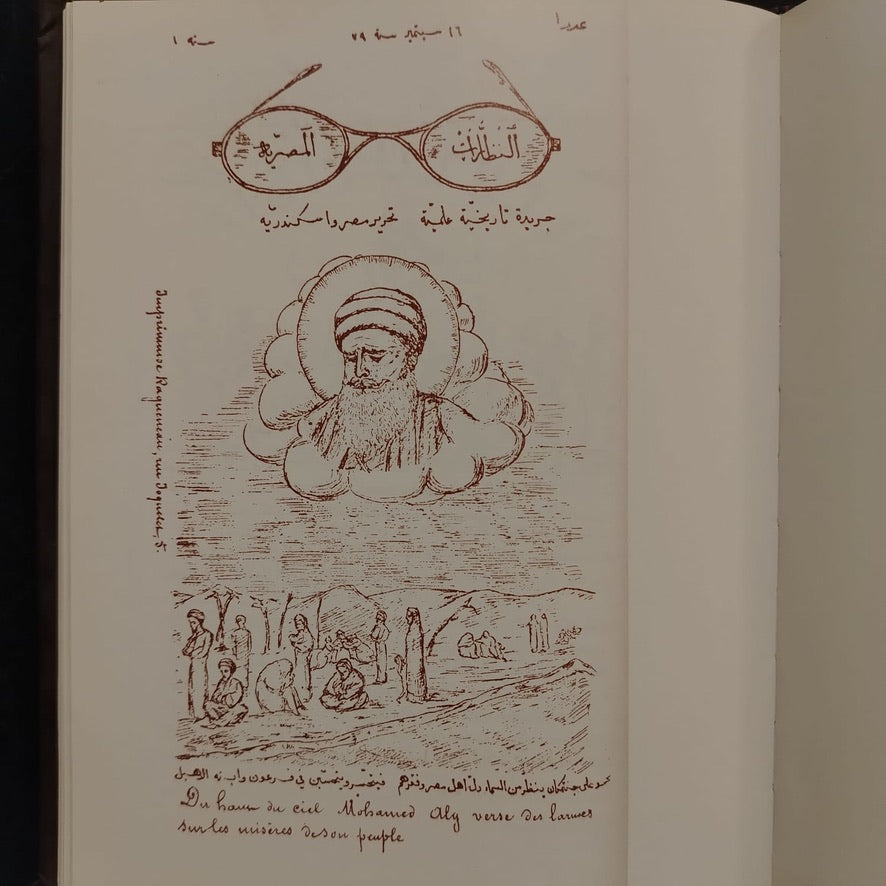 عدد ١
١٦ سبتمبر سنة ٧٩
سنه ١
النظارات
المصريه
جريدة تاريخيّة علميّة تحرير مصر واسكندريّه
Imprimeuse Ragueneau, rue Joquelet, 5.
على جنتمكان ينظر من السماء ذلّ اهل مصر وفقرهم فيتحسّر في فرعون وابنه الاهبل
Du haut du ciel Mohamed Aly verse des larmes
sur les misères de son peuple